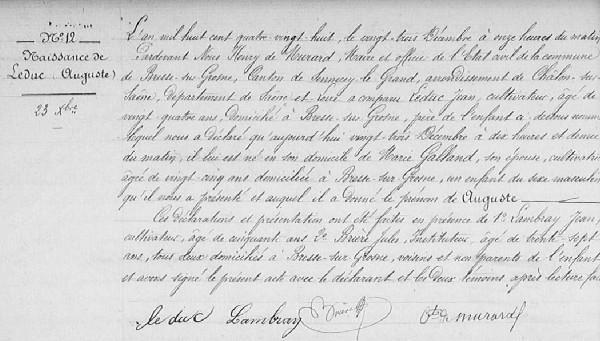 N° 12
Naissance de
Leduc (Auguste)
23 Xbre
L'an mil huit cent quatre vingt huit, le vingt trois Décembre à onze heures du matin
Pardevant Nous Henry de Murard, Maire et officier de l'Etat civil de la commune
de Bresse-sur-Grosne, Canton de Sennecey le Grand, arrondissement de Châlon-sur-
Saône, département de Saône et Loire a comparu Leduc Jean, cultivateur, âgé de
vingt quatre ans, Domicilié à Bresse-sur-Grosne, père de l'enfant ci-dessous nommé
lequel nous a déclaré qu'aujourd'hui vingt trois Décembre à dix heures et demie
du matin, il lui est né en son domicile de Marie Galland, son épouse, cultivatrice
âgée de vingt cinq ans domiciliée à Bresse-sur-Grosne, un enfant du sexe masculin
qu'il nous a présenté et auquel il a donné le prénom de Auguste
Ces déclarations et présentation ont été faites en présence de 1° Lambray Jean,
cultivateur, âgé de cinquante ans 2° Jules, Instituteur, âgé de trente sept
ans, tous deux domiciliés à Bresse-sur-Grosne, voisins et non parents de l'enfant
et avons signé le présent acte avec le déclarant et les deux témoins après lecture
le duc Lambray murard